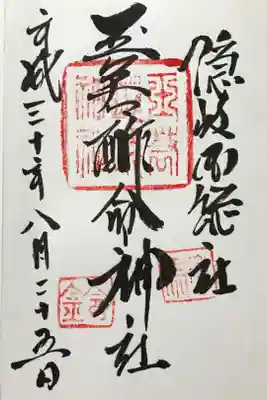 隠岐国総社
玉若酢命神社
平成三十年八月二十五日